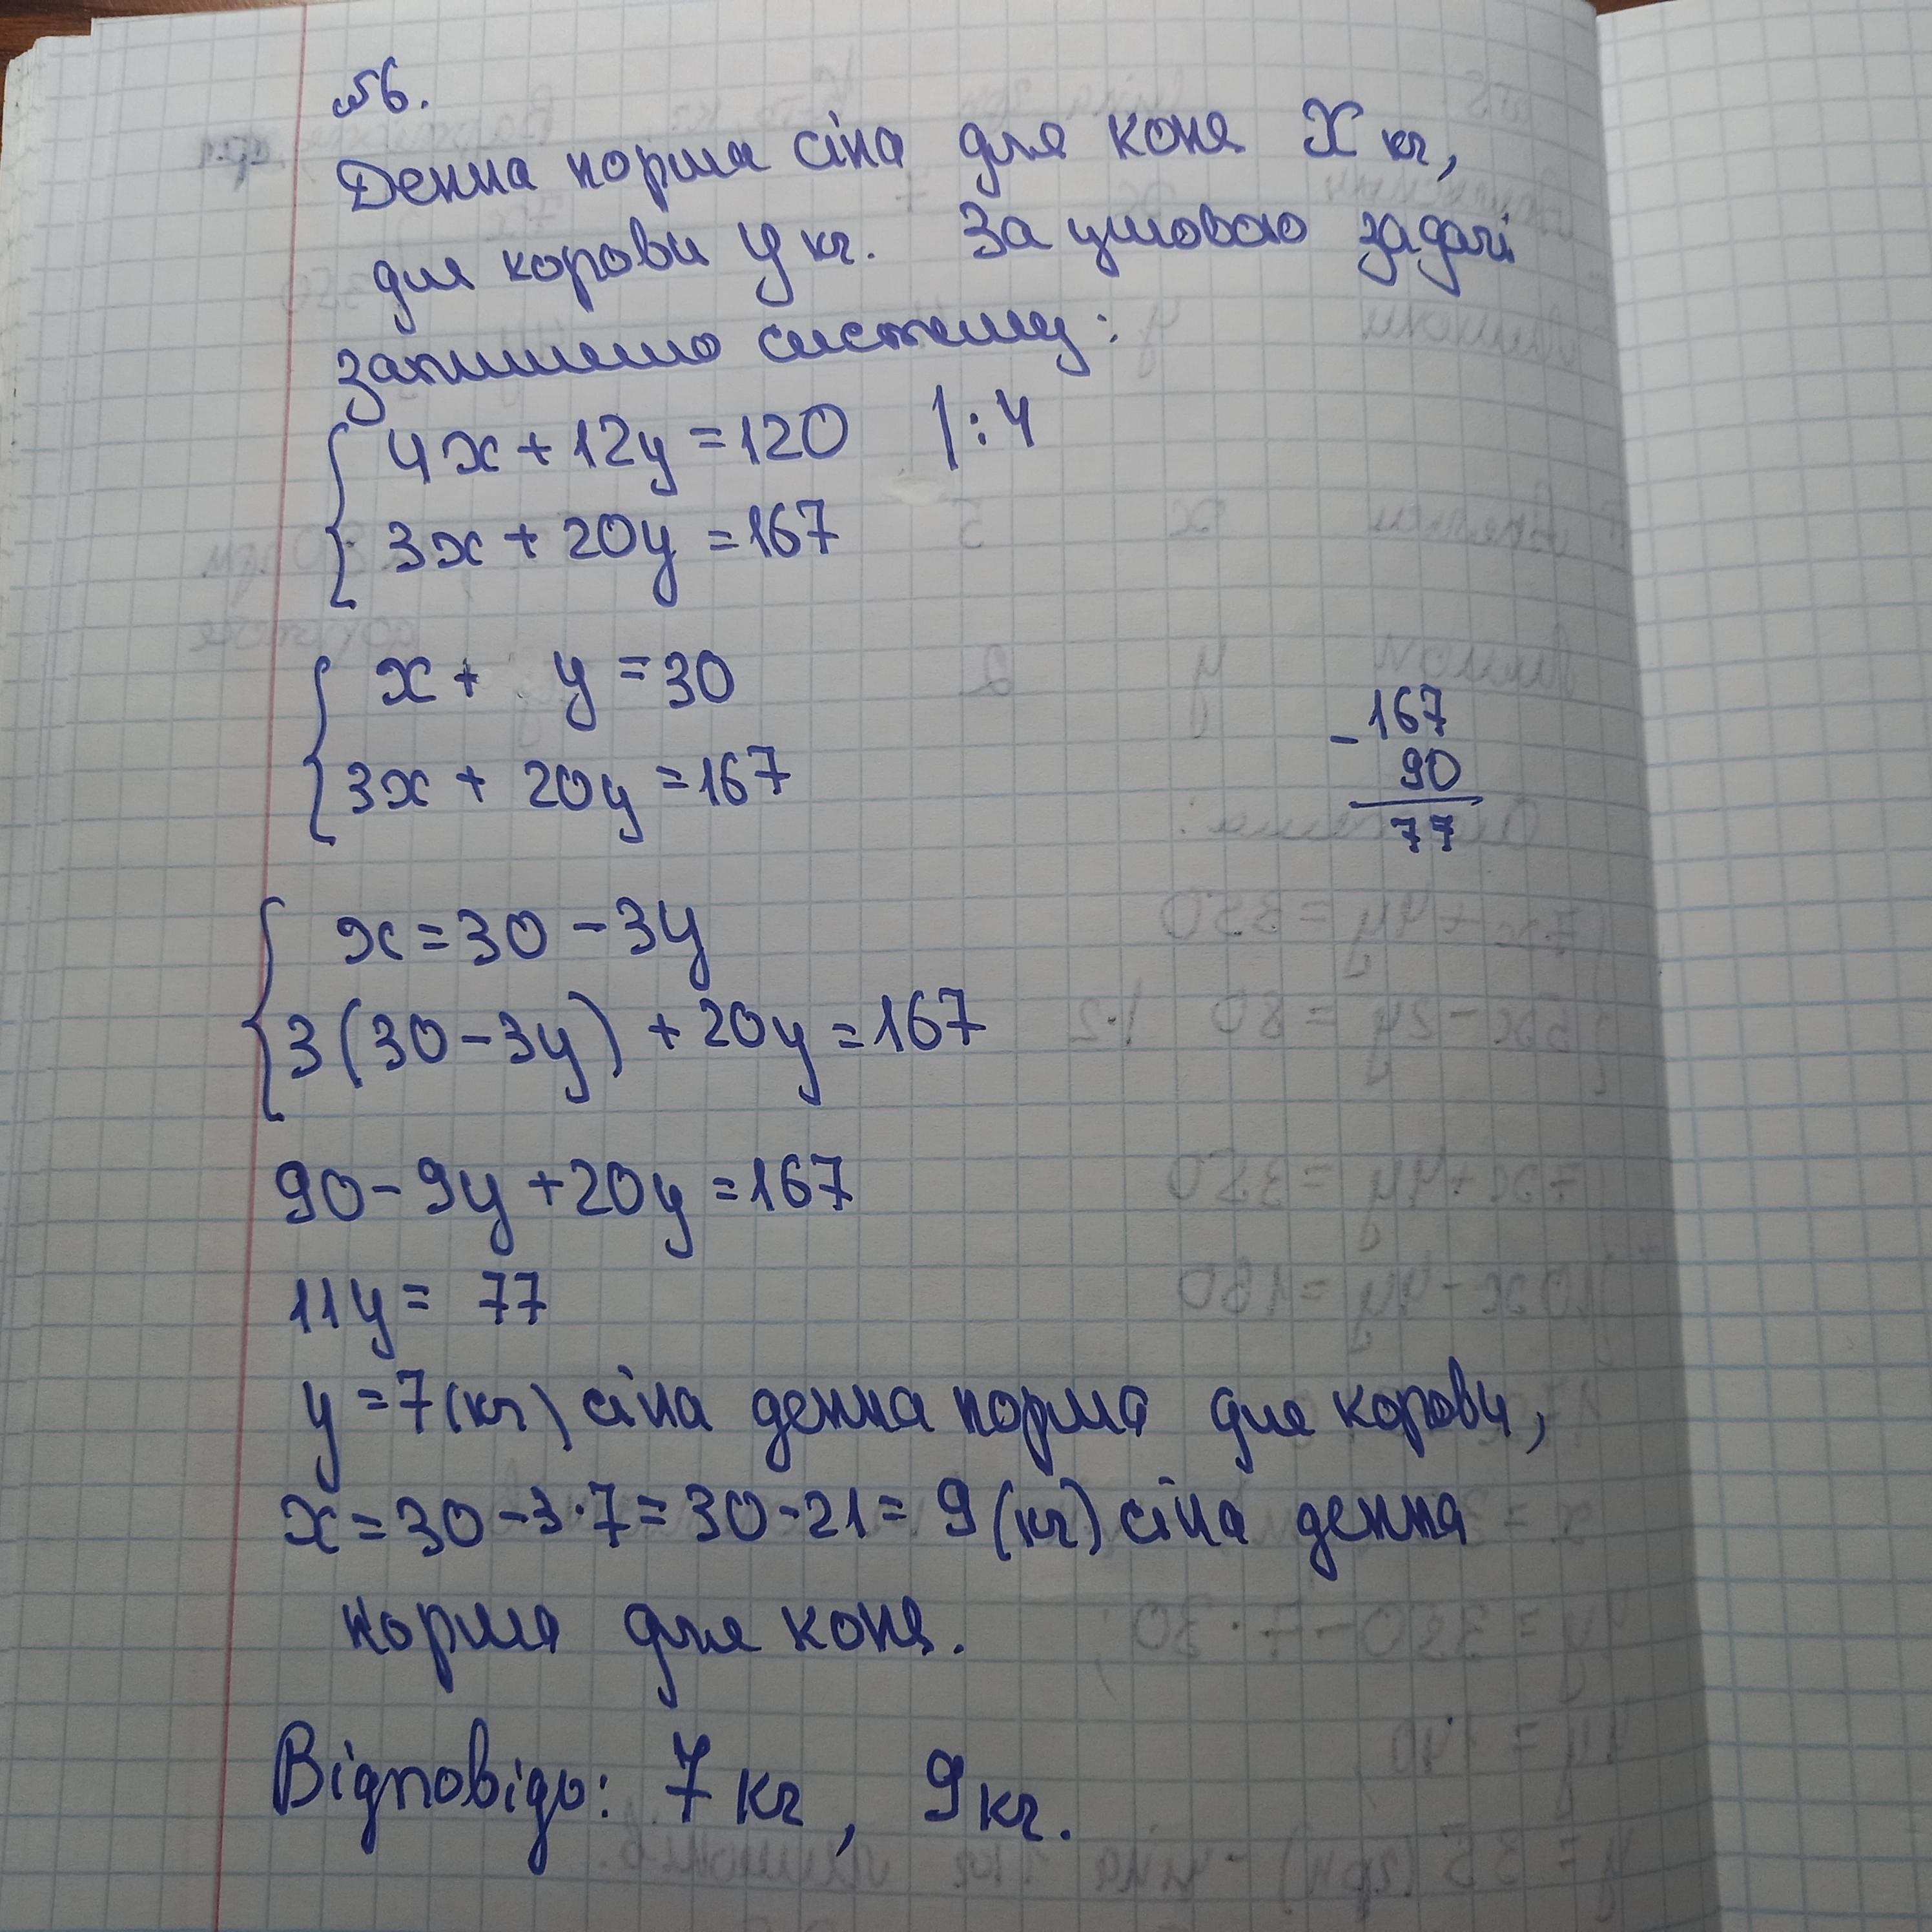 №6.
Денна норма сіна для коня X кг,
для корови y кг. За умовою задачі
запишемо систему:
4x + 12y = 120 |:4
3x + 20y = 167
x + y = 30
3x + 20y = 167
167
- 90
77
x = 30 - 3y
3(30 - 3y) + 20y = 167
90 - 9y + 20y = 167
11y = 77
y = 7 (кг) сіна денна норма для корови,
x = 30 - 3·7 = 30 - 21 = 9 (кг) сіна денна
норма для коня.
Відповідь: 7 кг, 9 кг.